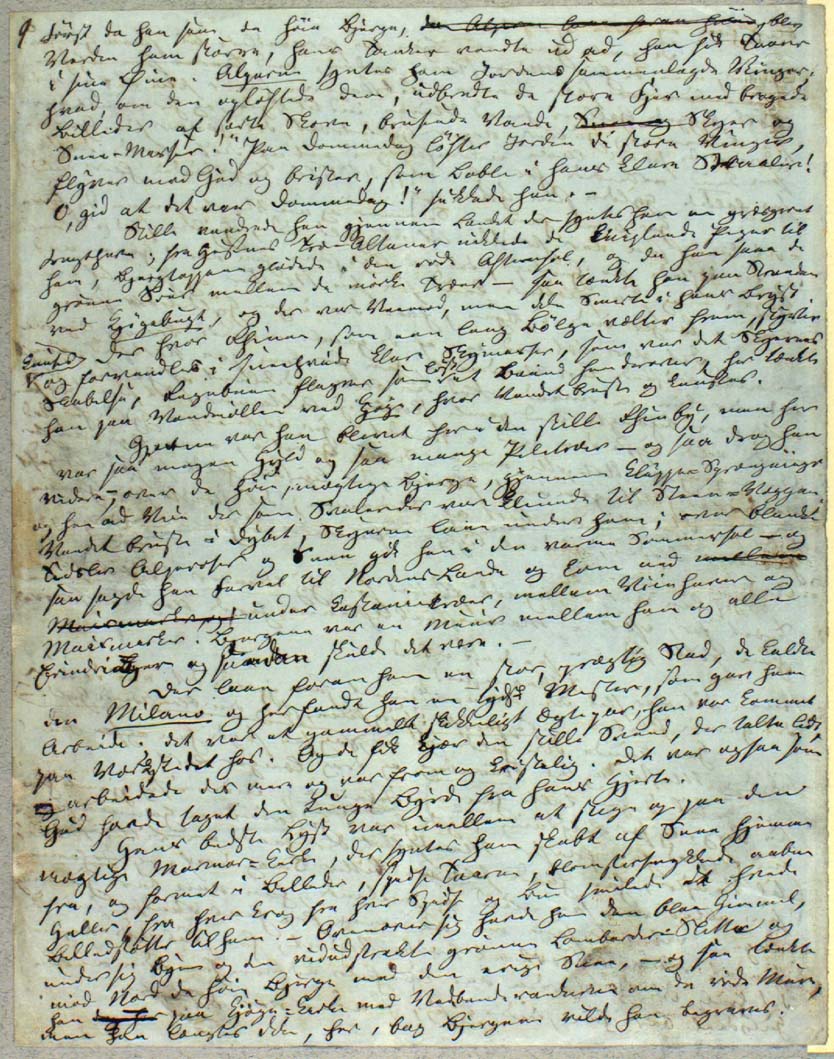 9 Først da han saae de høie Bjerge, blev
Verden ham større, hans Tanker vendte ud ad, han fik Taarer
i sine Øine. Alperne syntes ham Jordens sammenlagte Vinger;
hvad, om den opløftede dem, udbredte de store Fjer med brogede
Billeder af sorte Skove, brusende Vande, Skyer og
Snee-Masser! "Paa Dommedag løfter Jorden de store Vinger,
flyver mod Gud og brister, som Boble i hans klare Straaler!
O, gid at det var Dommedag!" sukkede han. –
Stille vandrede han gjennem Landet der syntes ham en græsgroet
Frugthave; fra Husenes Træ-Altaner nikkede de kniplende Piger til
ham, Bjergtoppene glødede i den røde Aftensol, og da han saae de
grønne Søer mellem de mørke Træer – saa tænkte han paa Stranden
ved Kjøgebugt, og der var Veemod, men ikke Smerte i hans Bryst.
Der hvor Rhinen, som een lang Bølge vælter frem, styrter,
knuses og forvandles i sneehvide klare Skymasser, som var det Skyernes
Skabelse, Regnbuen flagrer som løst Baand hen derover, her tænkte
han paa Vandmøllen ved Kjøge, hvor Vandet bruste og knustes.
Gjerne var han blevet her i den stille Rhinby, men her
var saa megen Hyld og saa mange Piletræer – og saa drog han
videre, over de høie, mægtige Bjerge, gjennem Klippe-Sprængninger
og hen ad Veie der som Svalereder var klinede til Steen-Væggen.
Vandet bruste i Dybet, Skyerne laae under ham; over blanke
Tidsler, Alperoser og Snee gik han i den varme Sommersol – og
saa sagde han Farvel til Nordens Lande og kom ned
under Kastanietræer, mellem Viinhaver og
Maismarker. Bjergene var en Muur mellem ham og alle
Erindringer og saadan skulde det være. –
Der laae foran ham en stor, prægtig Stad, de kaldte
den Milano og her fandt han en tydsk Mester, som gav ham
Arbeide. det var et gammelt skikkeligt Ægtepar, han var kommet
paa Værkstedet hos. Og de fik kjær den stille Svend, der talte lidt,
arbeidede des mere og var from og kristelig. Det var ogsaa som
Gud havde taget den tunge Byrde fra hans Hjerte.
Hans bedste Lyst var imellem at stige op paa den
mægtige Marmor-Kirke, der syntes ham skabt af Snee hjemme
fra, og formet i Billeder, spidse Taarne, blomstersmykkede aabne
Haller, fra hver Krog fra hver Spids og Bue smilede de hvide
Billedstøtter til ham. – Ovenover sig havde han den blaa Himmel,
under sig Byen og den vidudstrakte grønne Lombardie-Slette og
mod Nord de høie Bjerge med den evige Snee, – og saa tænkte
han paa Kjøge-Kirke med Vedbendrankerne om de røde Mure,
men han længtes ikke, her, bag Bjergene vilde han begraves.